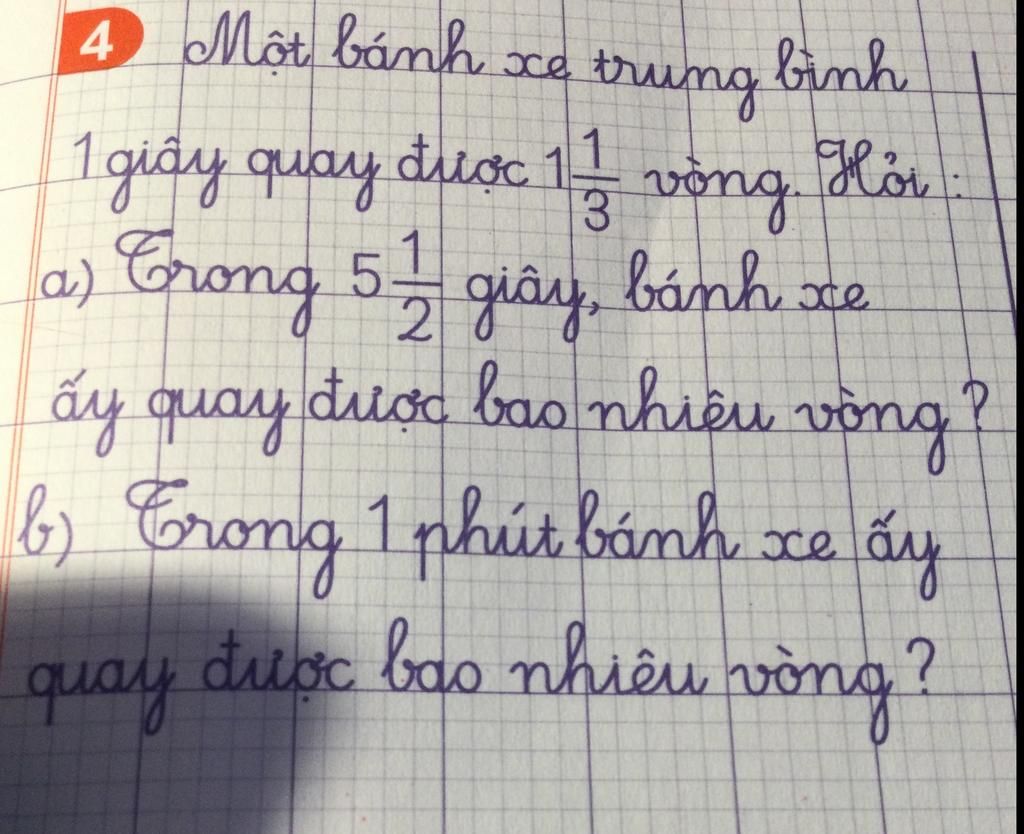 4 Một bánh xe trung bình
1 giây quay được 1 1/3 vòng. Hỏi :
a) Trong 5 1/2 giây, bánh xe
ấy quay được bao nhiêu vòng?
b) Trong 1 phút bánh xe ấy
quay được bao nhiêu vòng?